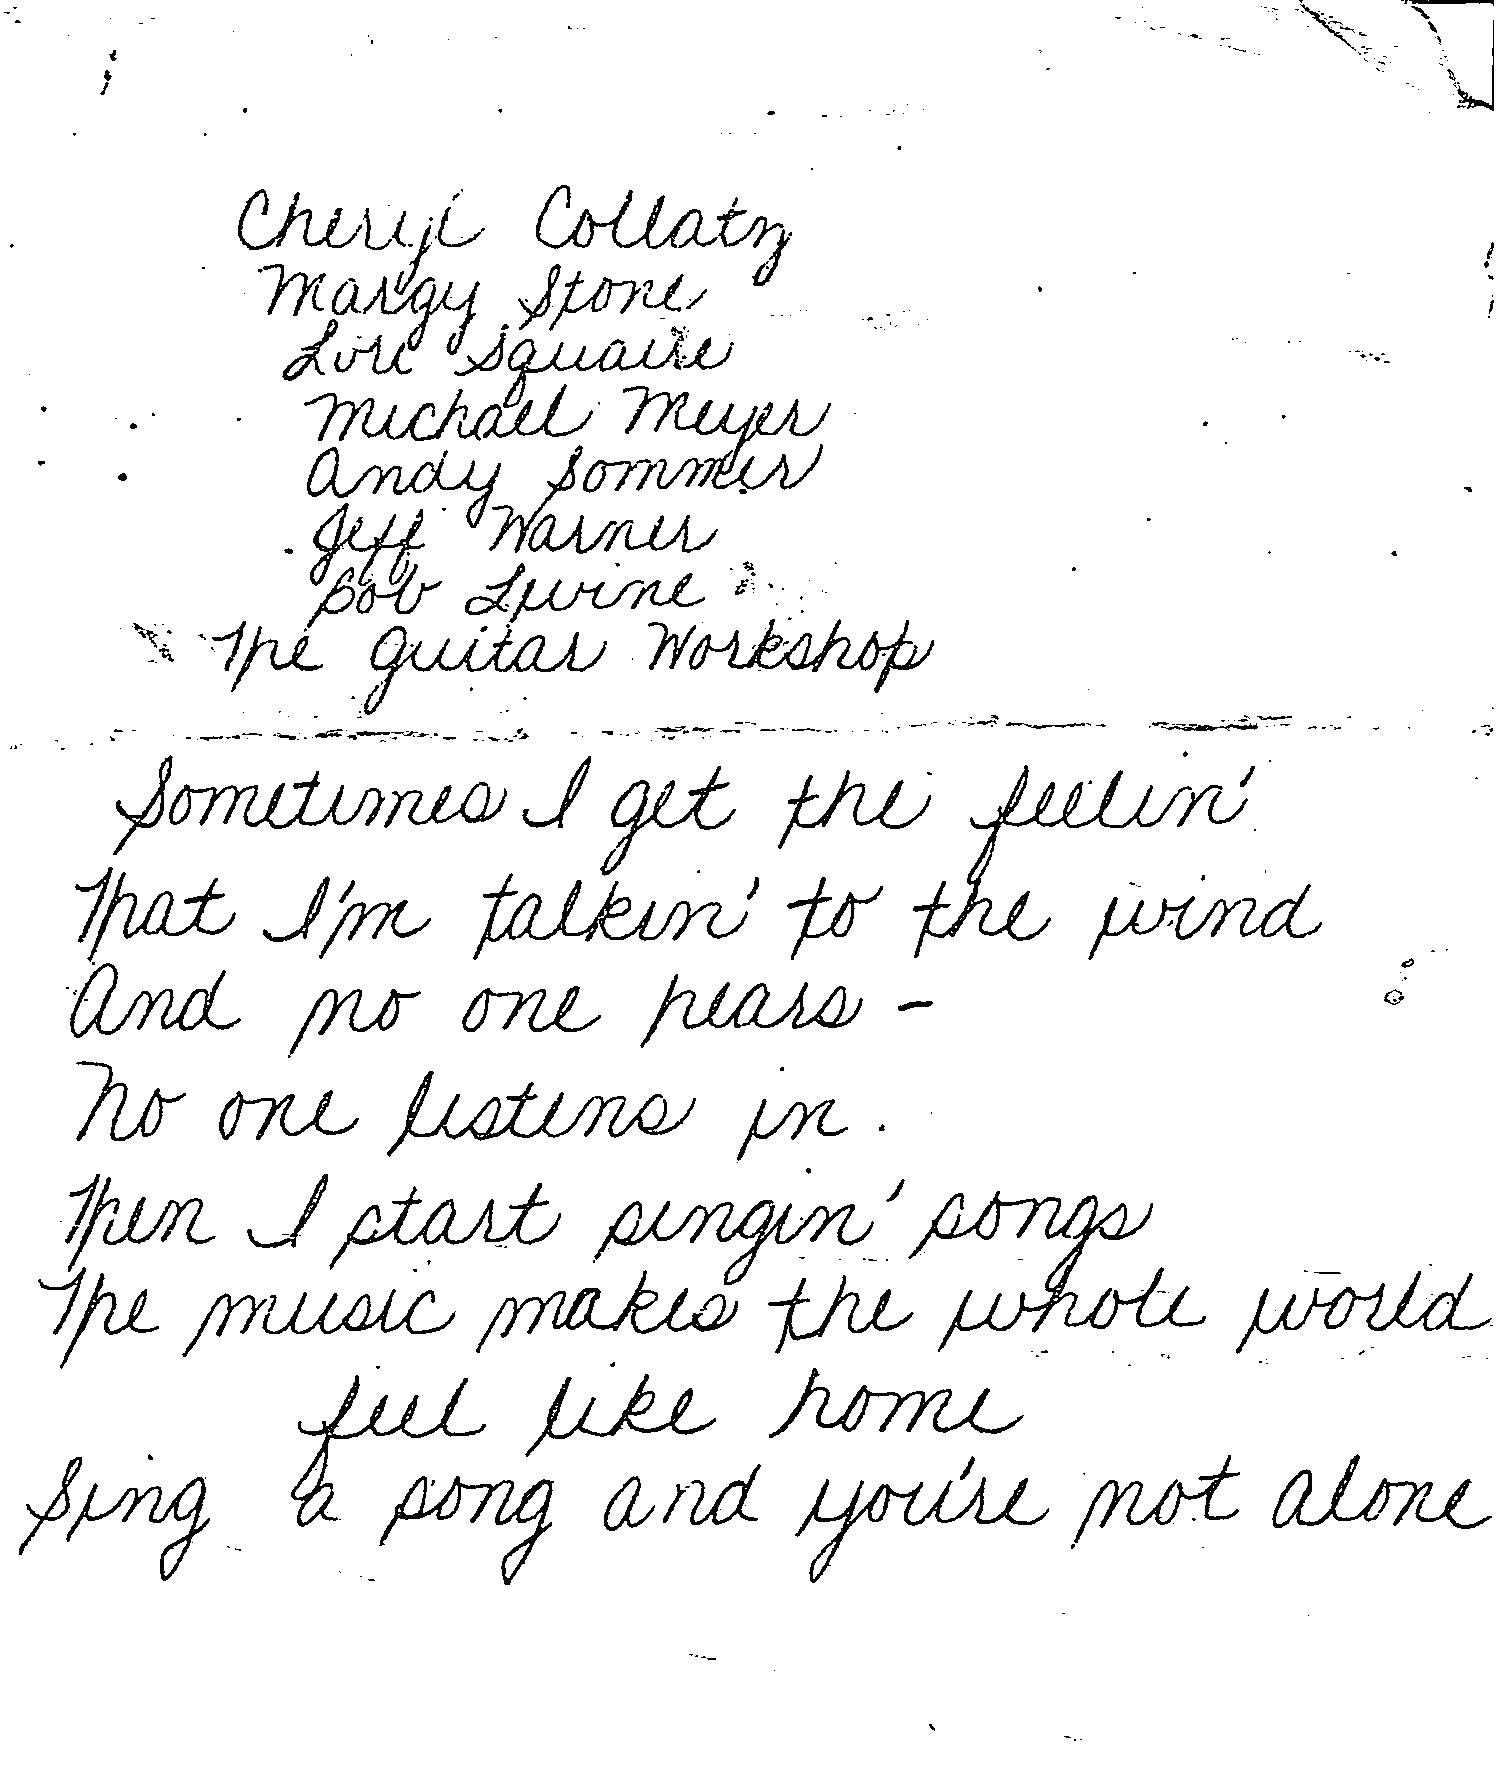 Cheryl Collatz
Margy Stone
Lori Squaire
Michael Meyer
Andy Sommer
Jeff Warner
Bob Levine
The Guitar Workshop
Sometimes I get the feelin'
That I'm talkin' to the wind
And no one hears -
No one listens in.
Then I start singin' songs
The music makes the whole world
feel like home
Sing a song and you're not alone